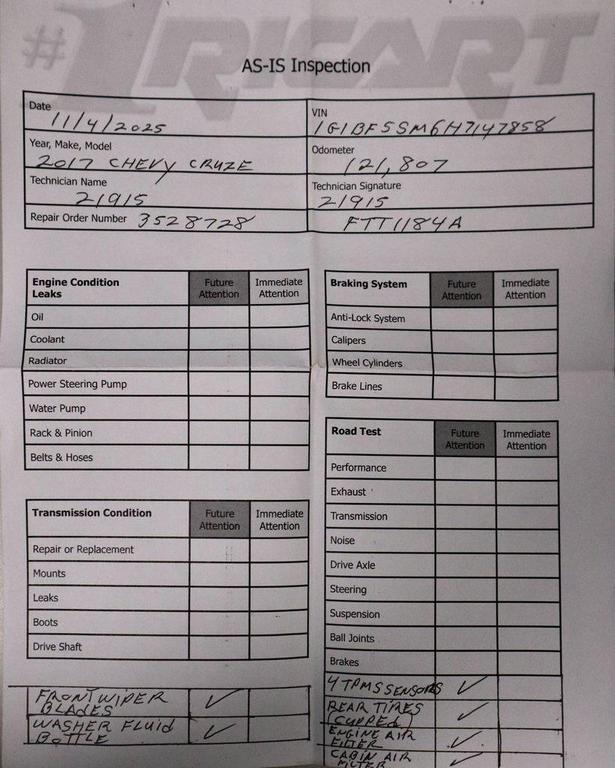 #1 RICART
AS-IS Inspection
Date
11/4/2025
VIN
1G1BF5SM6H7147858
Year, Make, Model
2017 CHEVY CRUZE
Odometer
121,807
Technician Name
21915
Technician Signature
21915
Repair Order Number 3528728
FTT1184A
Engine Condition
Leaks
Future
Attention
Immediate
Attention
Oil
Coolant
Radiator
Power Steering Pump
Water Pump
Rack & Pinion
Belts & Hoses
Braking System
Future
Attention
Immediate
Attention
Anti-Lock System
Calipers
Wheel Cylinders
Brake Lines
Transmission Condition
Future
Attention
Immediate
Attention
Repair or Replacement
Mounts
Leaks
Boots
Drive Shaft
Road Test
Future
Attention
Immediate
Attention
Performance
Exhaust
Transmission
Noise
Drive Axle
Steering
Suspension
Ball Joints
Brakes
FRONT WIPER
BLADES ✓
WASHER FLUID
BOTTLE ✓
4 TPMS SENSORS ✓
REAR TIRES
(CUPPED) ✓
ENGINE AIR
FILTER ✓
CABIN AIR
FILTER ✓